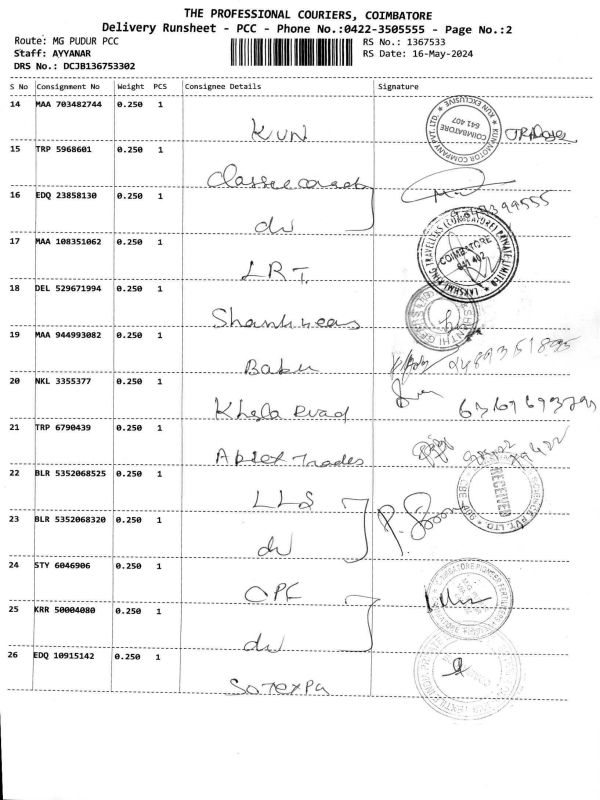 THE PROFESSIONAL COURIERS, COIMBATORE
Delivery Runsheet - PCC - Phone No.:0422-3505555 - Page No.:2
Route: MG PUDUR PCC
RS No.: 1367533
Staff: AYYANAR
RS Date: 16-May-2024
DRS No.: DCJB136753302
S No Consignment No Weight PCS Consignee Details Signature
14 MAA 703482744 0.250 1
KUN
KUN EXCLUSIVE
KUN MOTOR COMPANY PVT. LTD.
COIMBATORE
641 407
15 TRP 5968601 0.250 1
16 EDQ 23858130 0.250 1
dw
17 MAA 108351062 0.250 1
LRT
LAKSHMI RING TRAVELLERS (COIMBATORE) PRIVATE LIMITED
COIMBATORE
641 402
18 DEL 529671994 0.250 1
SHANTHI GEARS
19 MAA 944993082 0.250 1
Babu
20 NKL 3355377 0.250 1
21 TRP 6790439 0.250 1
Trades
22 BLR 5352068525 0.250 1
LLS
RECEIVED
PVT. LTD.
23 BLR 5352068320 0.250 1
dw
24 STY 6046906 0.250 1
CPF
COIMBATORE PIONEER FERTILIZERS
25 KRR 50004080 0.250 1
dw
26 EDQ 10915142 0.250 1
Sotexpa